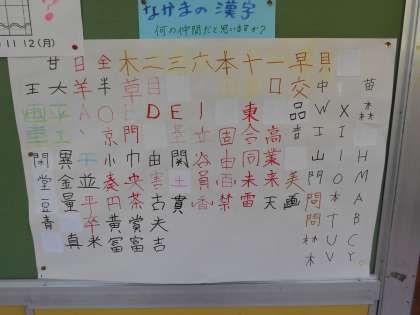 なかまの漢字
何の仲間だと思いますか?
11 12 (月)
甘 日 全 木 二 三 六 本 十 一 早 貝
王 大 羊 半 草 目 交 中 苗
A 〇 士 D E I 東 口 品 W X 森
画 平 京 門 固 合 高 吉 工 I
重 小 巾 由 関 谷 由 同 業 山 I H
関 異 干 奏 央 害 土 員 百 未 来 美 門 O M
堂 金 並 円 茶 古 貴 香 禁 雷 天 画 問 本 A
豆 量 平 黄 賞 夫 問 T B
青 真 卒 冨 富 吉 林 U C
米 木 V Y